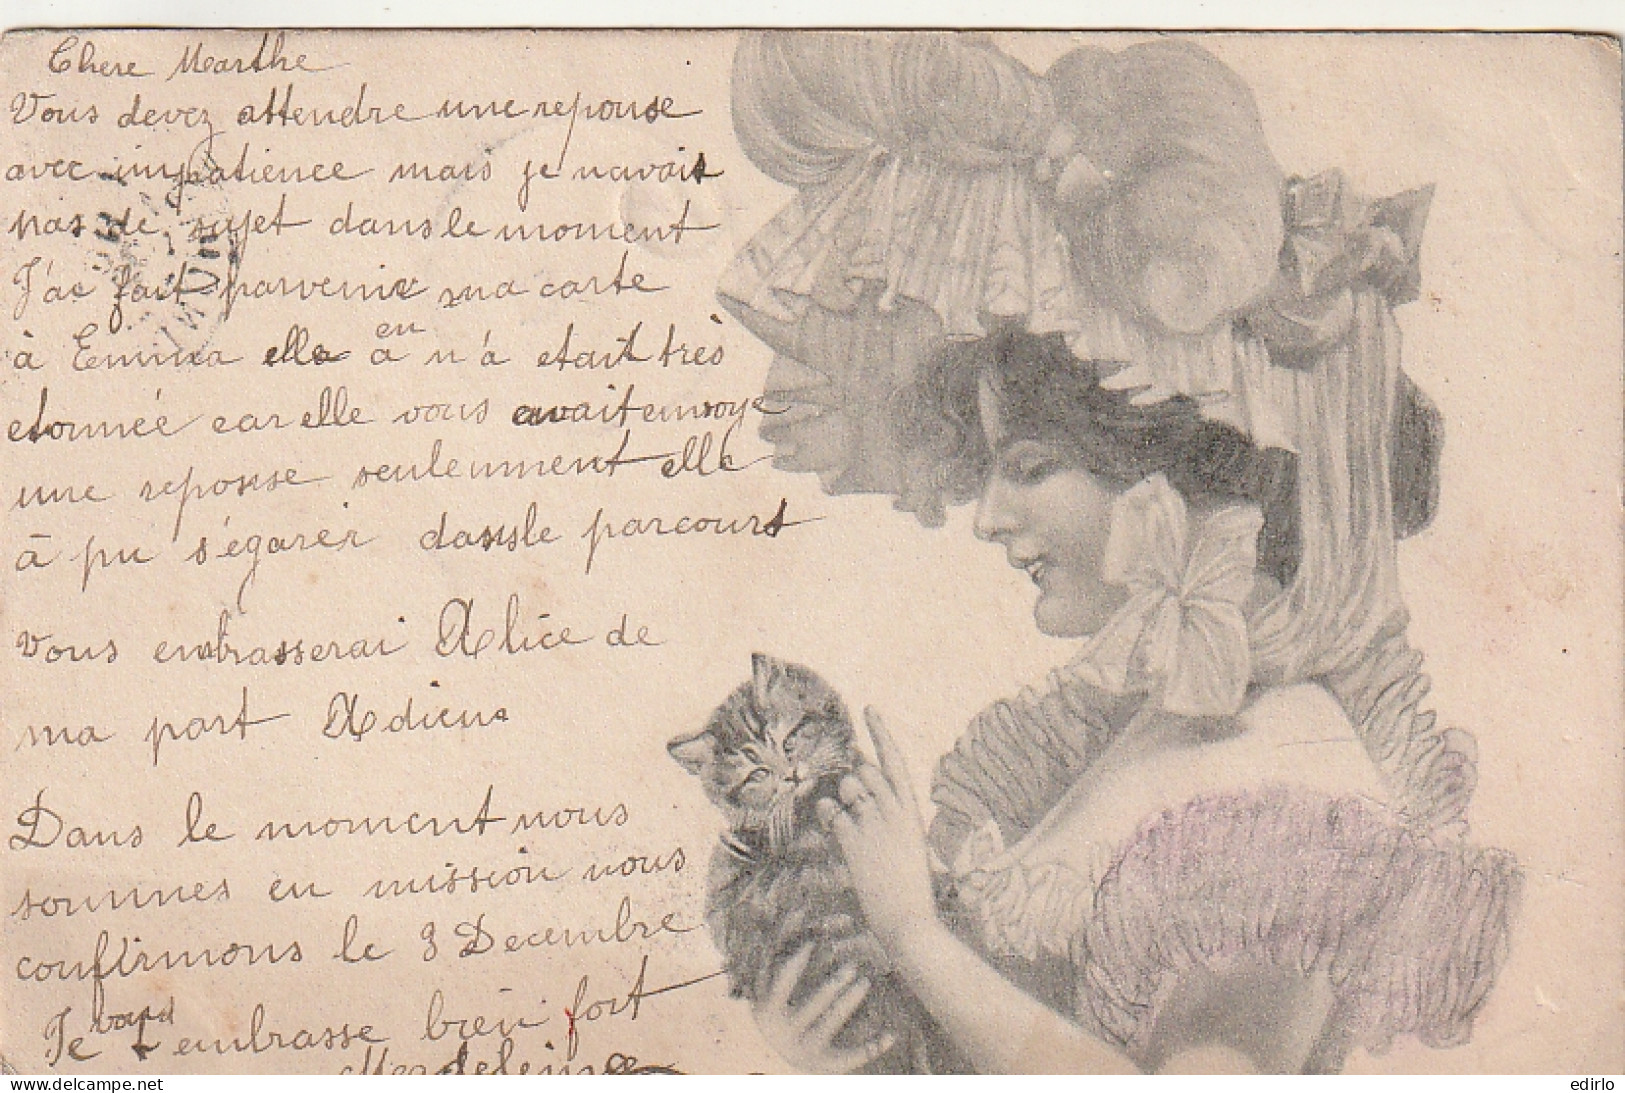 Chere Marthe
Vous devez attendre une reponse
avec impatience mais je n'avait
pas de sujet dans le moment
J'ai fait parvenir ma carte
à Emma elle en a n'à etait très
etonnée car elle vous avait envoye
une reponse seulemment elle
à pu s'égarér dans le parcourt
Vous embrasserai Alice de
ma part Adieu
Dans le moment nous
sommes en mission nous
confirmons le 3 Decembre
Je vous embrasse bien fort
Magdeleine
© delcampe.net
edirlo